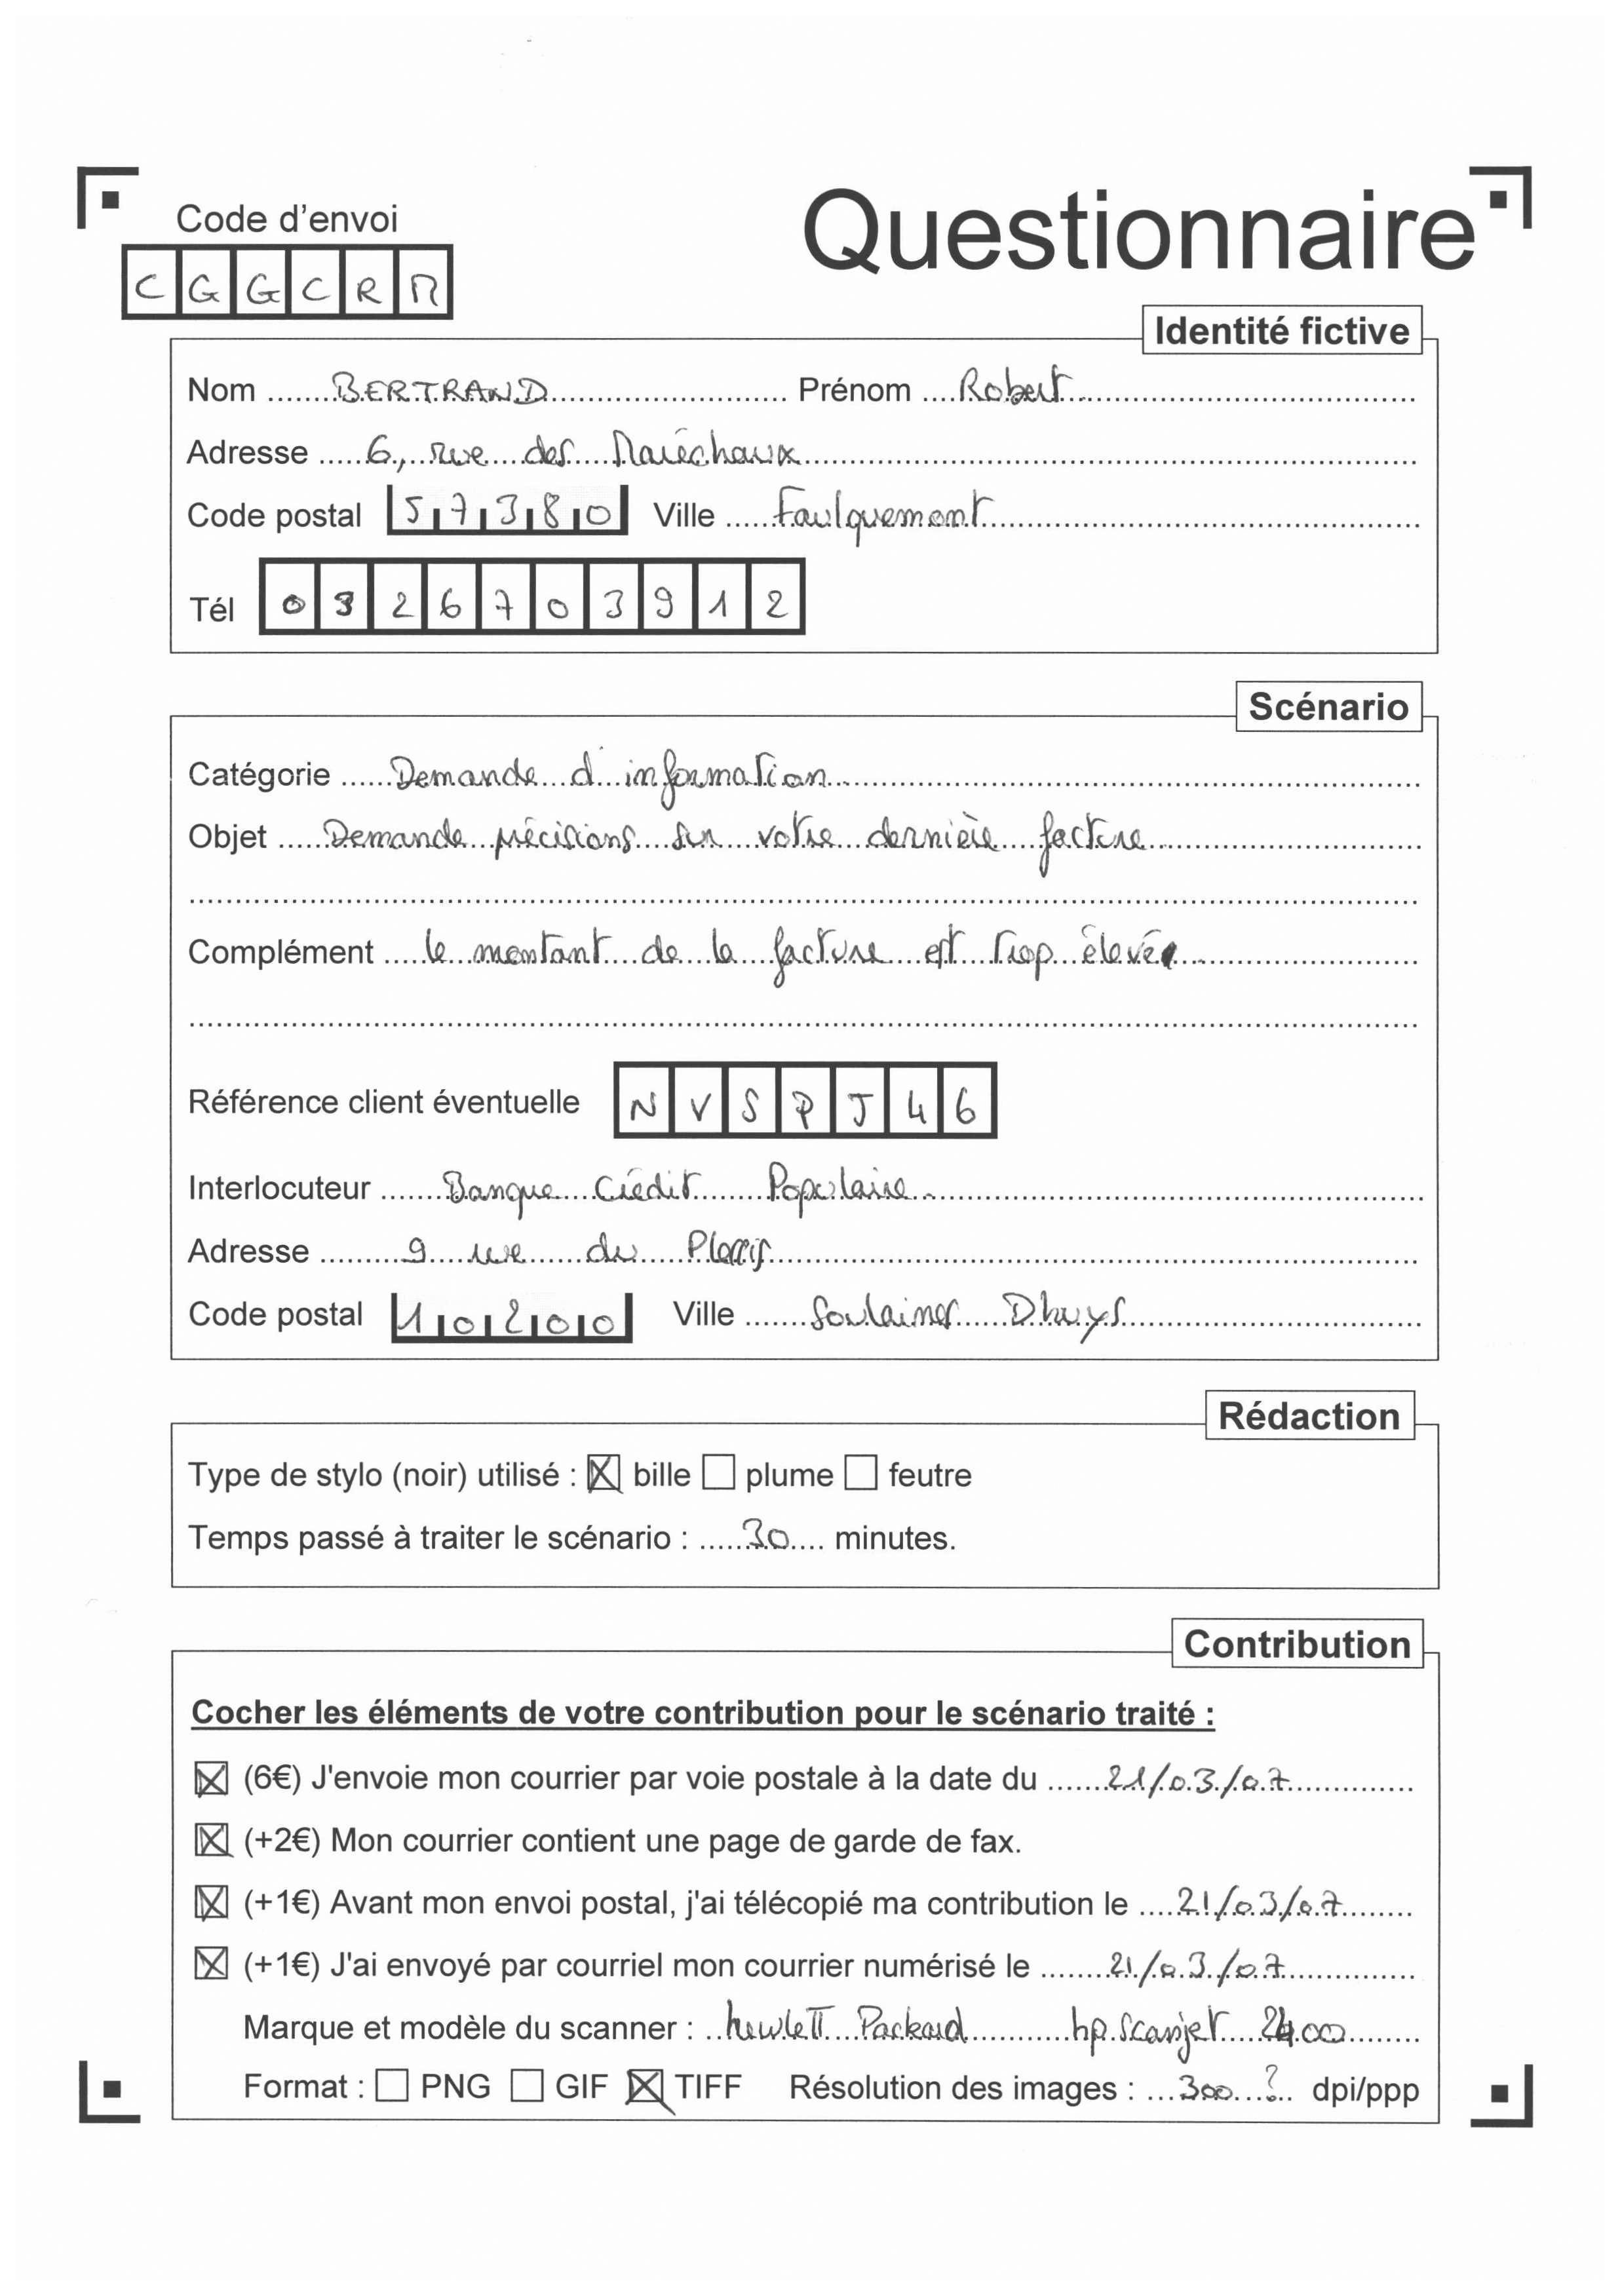 Code d'envoi
Questionnaire
C G G C R M
Identité fictive
Nom BERTRAND Prénom Robert
Adresse 6, rue des Maréchaux
Code postal 57380 Ville Faulquemont
Tél 0326703912
Scénario
Catégorie Demande d'information
Objet Demande précisions sur votre dernière facture
Complément le montant de la facture est trop élevé
Référence client éventuelle NVSPJ46
Interlocuteur Banque Crédit Populaire
Adresse 9 rue du
Code postal 10200 Ville Soulaines Dhuys
Rédaction
Type de stylo (noir) utilisé : ☒ bille ☐ plume ☐ feutre
Temps passé à traiter le scénario : 30 minutes.
Contribution
Cocher les éléments de votre contribution pour le scénario traité :
☒ (6€) J'envoie mon courrier par voie postale à la date du 21/03/07
☒ (+2€) Mon courrier contient une page de garde de fax.
☒ (+1€) Avant mon envoi postal, j'ai télécopié ma contribution le 21/03/07
☒ (+1€) J'ai envoyé par courriel mon courrier numérisé le 21/03/07
Marque et modèle du scanner : hewlett Packard hp scanjet 2400
Format : ☐ PNG ☐ GIF ☒ TIFF Résolution des images : 300 ? dpi/ppp